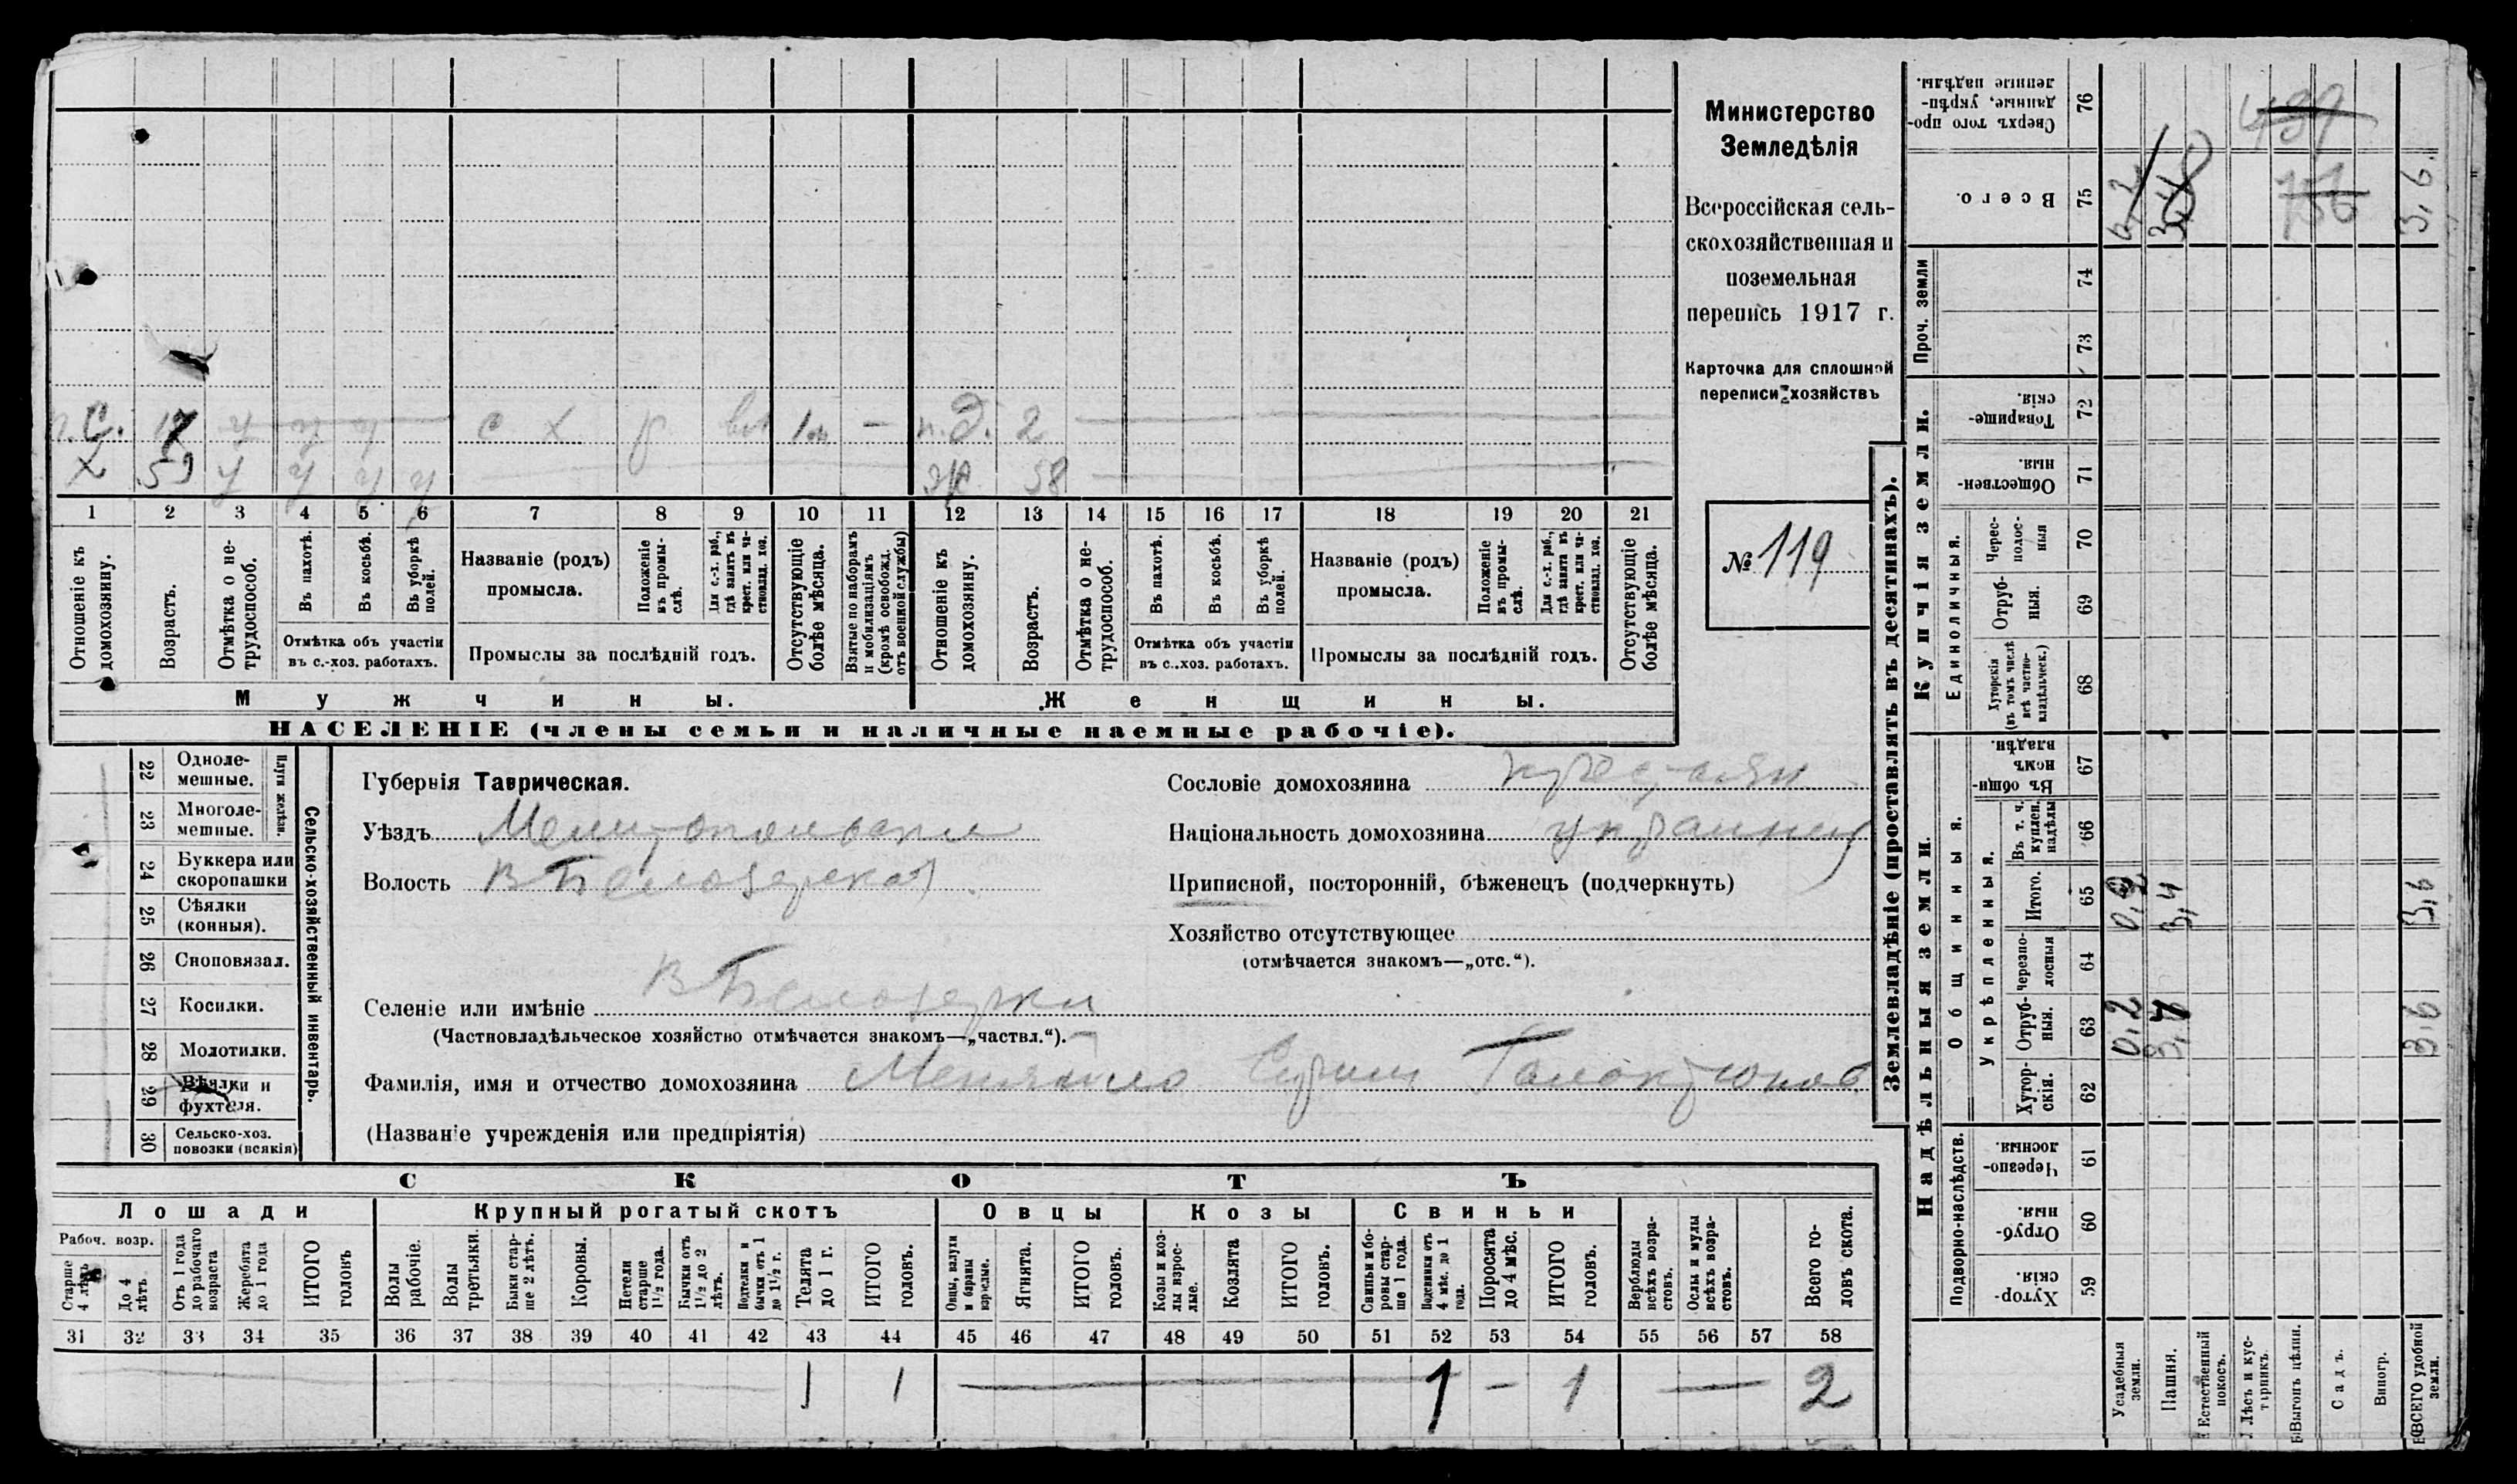 Министерство
Земледѣлія
Всероссійская сель-
скохозяйственная и
поземельная
перепись 1917 г.
Карточка для сплошной
переписи хозяйствъ
№ 119
п.с. у у у с х р 1 м — п.д. 2
х 59 у у у у ж 58
1 2 3 4 5 6 7 8 9 10 11 12 13 14 15 16 17 18 19 20 21
Отношеніе къ домохозяину.
Возрастъ.
Отмѣтка о не-
трудоспособ.
Въ пахотѣ.
Въ косьбѣ.
Въ уборкѣ
полей.
Отмѣтка объ участіи
въ с.-хоз. работахъ.
Названіе (родъ)
промысла.
Положеніе
въ промы-
слѣ.
Для с.-х. раб.,
гдѣ занятъ въ
крест. или ча-
стновлад. хоз.
Промыслы за послѣдній годъ.
Отсутствующіе
болѣе мѣсяца.
Взятые по наборамъ
и мобилизаціямъ
(кромѣ освобожд.
отъ военной службы)
Отношеніе къ
домохозяину.
Возрастъ.
Отмѣтка о не-
трудоспособ.
Въ пахотѣ.
Въ косьбѣ.
Въ уборкѣ
полей.
Отмѣтка объ участіи
въ с..хоз. работахъ.
Названіе (родъ)
промысла.
Положеніе
въ промы-
слѣ.
Для с.-х. раб.,
гдѣ занята въ
крест. или ча-
стновлад. хоз.
Промыслы за послѣдній годъ.
Отсутствующіе
болѣе мѣсяца.
Мужчины.
Женщины.
НАСЕЛЕНІЕ (члены семьи и наличные наемные рабочіе).
22 Одноле-
мешные.
23 Многоле-
мешные.
Плуги желѣзн.
24 Буккера или
скоропашки
25 Сѣялки
(конныя).
26 Сноповязал.
27 Косилки.
28 Молотилки.
29 Вѣялки и
фухтеля.
30 Сельско-хоз.
повозки (всякія)
Сельско-хозяйственный инвентарь.
Губернія Таврическая.
Уѣздъ Мелитопольскій
Волость В Белозерская
Селеніе или имѣніе В Белозерка
(Частновладѣльческое хозяйство отмѣчается знакомъ—„частвл.“).
Фамилія, имя и отчество домохозяина Меняйло Галактіонов
(Названіе учрежденія или предпріятія)
Сословіе домохозяина крестьян
Національность домохозяина украинец
Приписной, посторонній, бѣженецъ (подчеркнуть)
Хозяйство отсутствующее
(отмѣчается знакомъ—„отс.“).
СКОТЪ
Лошади
Крупный рогатый скотъ
Овцы
Козы
Свиньи
Рабоч. возр.
Старше
4 лѣтъ
До 4
лѣтъ
Отъ 1 года
до рабочаго
возраста
Жеребята
до 1 года
ИТОГО
головъ
Волы
рабочіе.
Волы
третьяки.
Быки стар-
ше 2 лѣтъ.
Коровы.
Нетели
старше
1½ года.
Бычки отъ
1½ до 2
лѣтъ.
Подтелки и
бычки отъ 1
до 1½ г.
Телята
до 1 г.
ИТОГО
головъ.
Овцы, валухи
и бараны
взрослые.
Ягнята.
ИТОГО
головъ.
Козы и коз-
лы взрос-
лые.
Козлята
ИТОГО
головъ.
Свиньи и бо-
ровы стар-
ше 1 года.
Подсвинки отъ
4 мѣс. до 1
года.
Поросята
до 4 мѣс.
ИТОГО
головъ.
Верблюды
всѣхъ возра-
стовъ.
Ослы и мулы
всѣхъ возра-
стовъ.
Всего го-
ловъ скота.
31 32 33 34 35 36 37 38 39 40 41 42 43 44 45 46 47 48 49 50 51 52 53 54 55 56 57 58
1 1 1 — 1 — 2
Землевладѣніе (проставлять въ десятинахъ).
Купчія земли.
Надѣльныя земли.
Сверхъ того про-
данные, укрѣп-
ленные надѣлы.
76
439
Всего.
75
3,6.
Проч. земли
74
73
Товарище-
скія.
72
Обществен-
ныя.
71
Единоличныя.
Черес-
полос-
ныя
70
Отруб-
ныя.
69
Хуторскія
(въ томъ числѣ
всѣ частно-
владѣльческ.)
68
Общинныя.
Въ общин-
номъ
владѣн.
67
Укрѣпленныя.
Въ т. ч.
куплен.
надѣлы
66
Итого.
65
0,2 3,4 3,6
черезпо-
лосныя
64
Отруб-
ныя.
63
0,2 3,6
Хутор-
скія.
62
Подворно-наслѣдств.
Черезпо-
лосныя
61
Отруб-
ныя.
60
Хутор-
скія.
59
Усадебныя
земли.
Пашня.
Естественный
покосъ.
Лѣсъ и кус-
тарникъ.
Выгонъ цѣлин.
Садъ.
Виногр.
ВСЕГО удобной
земли.